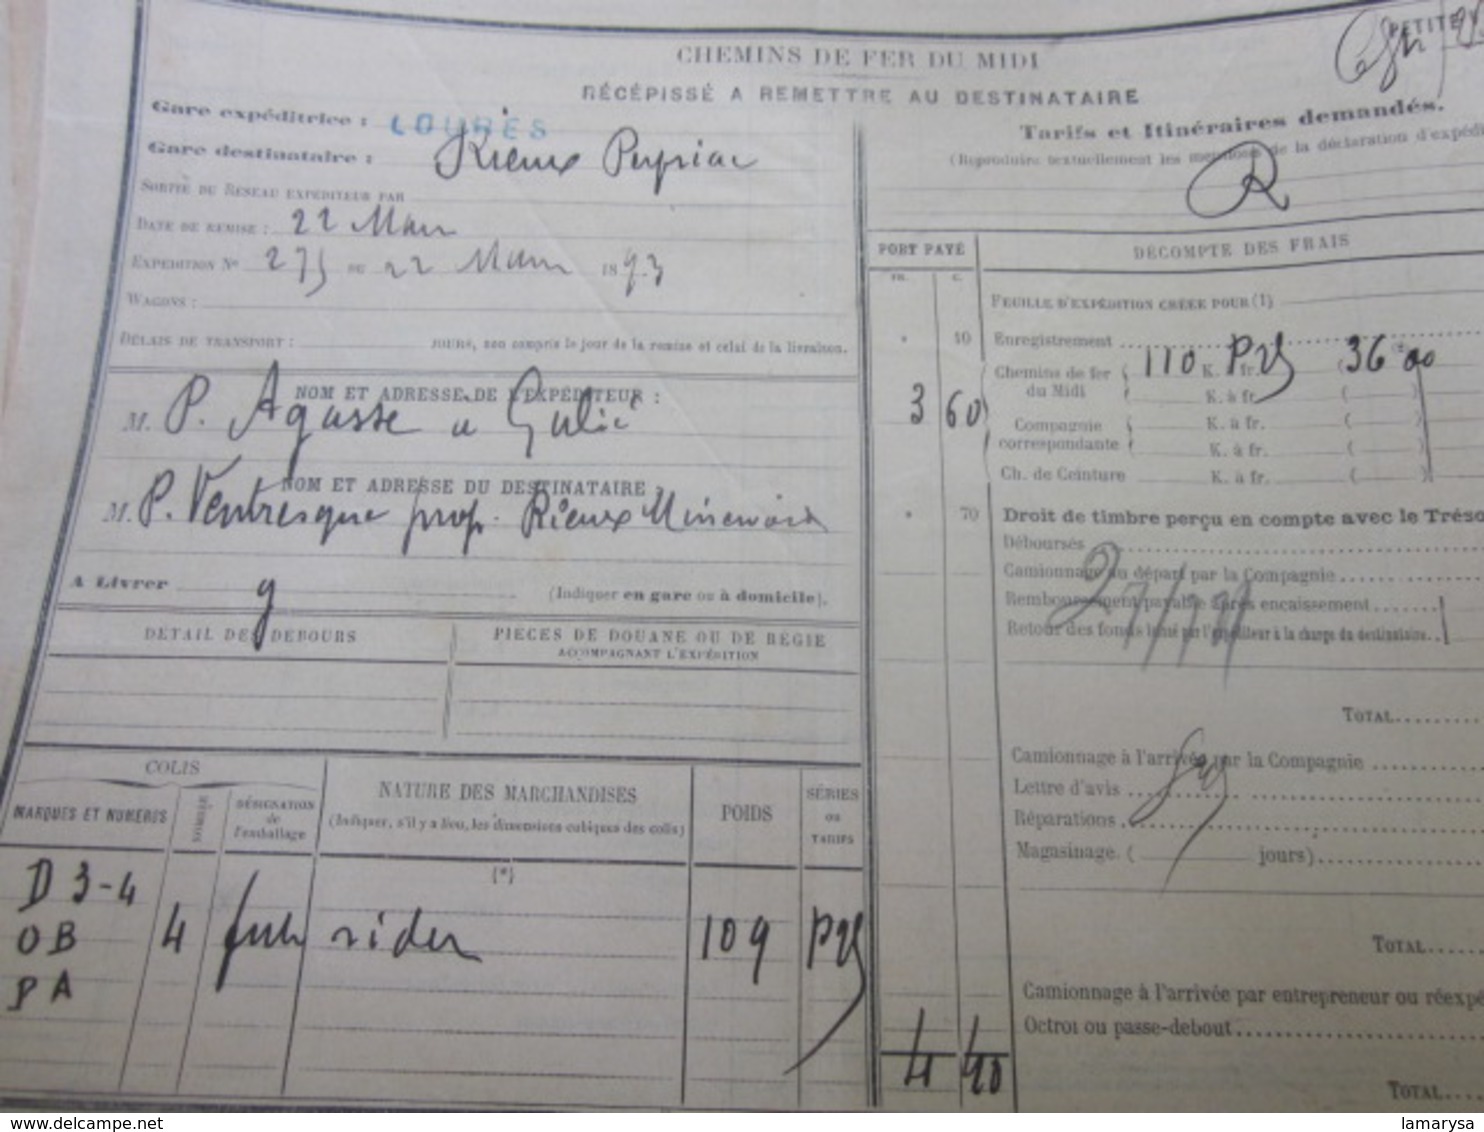 PETITE
CHEMINS DE FER DU MIDI
RÉCÉPISSÉ A REMETTRE AU DESTINATAIRE
Gare expéditrice : LOURES
Gare destinataire : Rieux Peyriac
SORTIE DU RÉSEAU EXPÉDITEUR PAR
DATE DE REMISE : 22 Mars
EXPÉDITION No 275 DU 22 Mars 1893
WAGONS :
DÉLAIS DE TRANSPORT : JOURS, non compris le jour de la remise et celui de la livraison.
NOM ET ADRESSE DE L'EXPÉDITEUR :
M. P. Agasse a
NOM ET ADRESSE DU DESTINATAIRE :
M. P. Ventresque prop. Rieux Minervois
A LIVRER g (Indiquer en gare ou à domicile).
DÉTAIL DES DÉBOURS
PIÈCES DE DOUANE OU DE RÉGIE
ACCOMPAGNANT L'EXPÉDITION
COLIS
MARQUES ET NUMÉROS
NOMBRE
DÉSIGNATION
de
l'emballage
NATURE DES MARCHANDISES
(Indiquer, s'il y a lieu, les dimensions cubiques des colis)
(*)
POIDS
SÉRIES
OU
TARIFS
D 3-4
OB 4 futs vides 109 PV
PA
Tarifs et Itinéraires demandés.
(Reproduire textuellement les mentions de la déclaration d'expédi
R
PORT PAYÉ
FR. C.
DÉCOMPTE DES FRAIS
FEUILLE D'EXPÉDITION CRÉÉE POUR (1)
" 10 Enregistrement
3 60 Chemins de fer du Midi { 110 K. PV fr. (36 00
K. à fr. ( )
Compagnie correspondante { K. à fr. ( )
K. à fr. ( )
Ch. de Ceinture K. à fr. ( )
" 70 Droit de timbre perçu en compte avec le Tréso
Déboursés
Camionnage au départ par la Compagnie
Remboursement payable après encaissement
Retour des fonds
l'expéditeur à la charge du destinataire
TOTAL
Camionnage à l'arrivée par la Compagnie
Lettre d'avis
Réparations
Magasinage ( jours)
TOTAL
Camionnage à l'arrivée par entrepreneur ou réexpé
Octroi ou passe-debout
4 40
TOTAL
delcampe.net
lamarysa